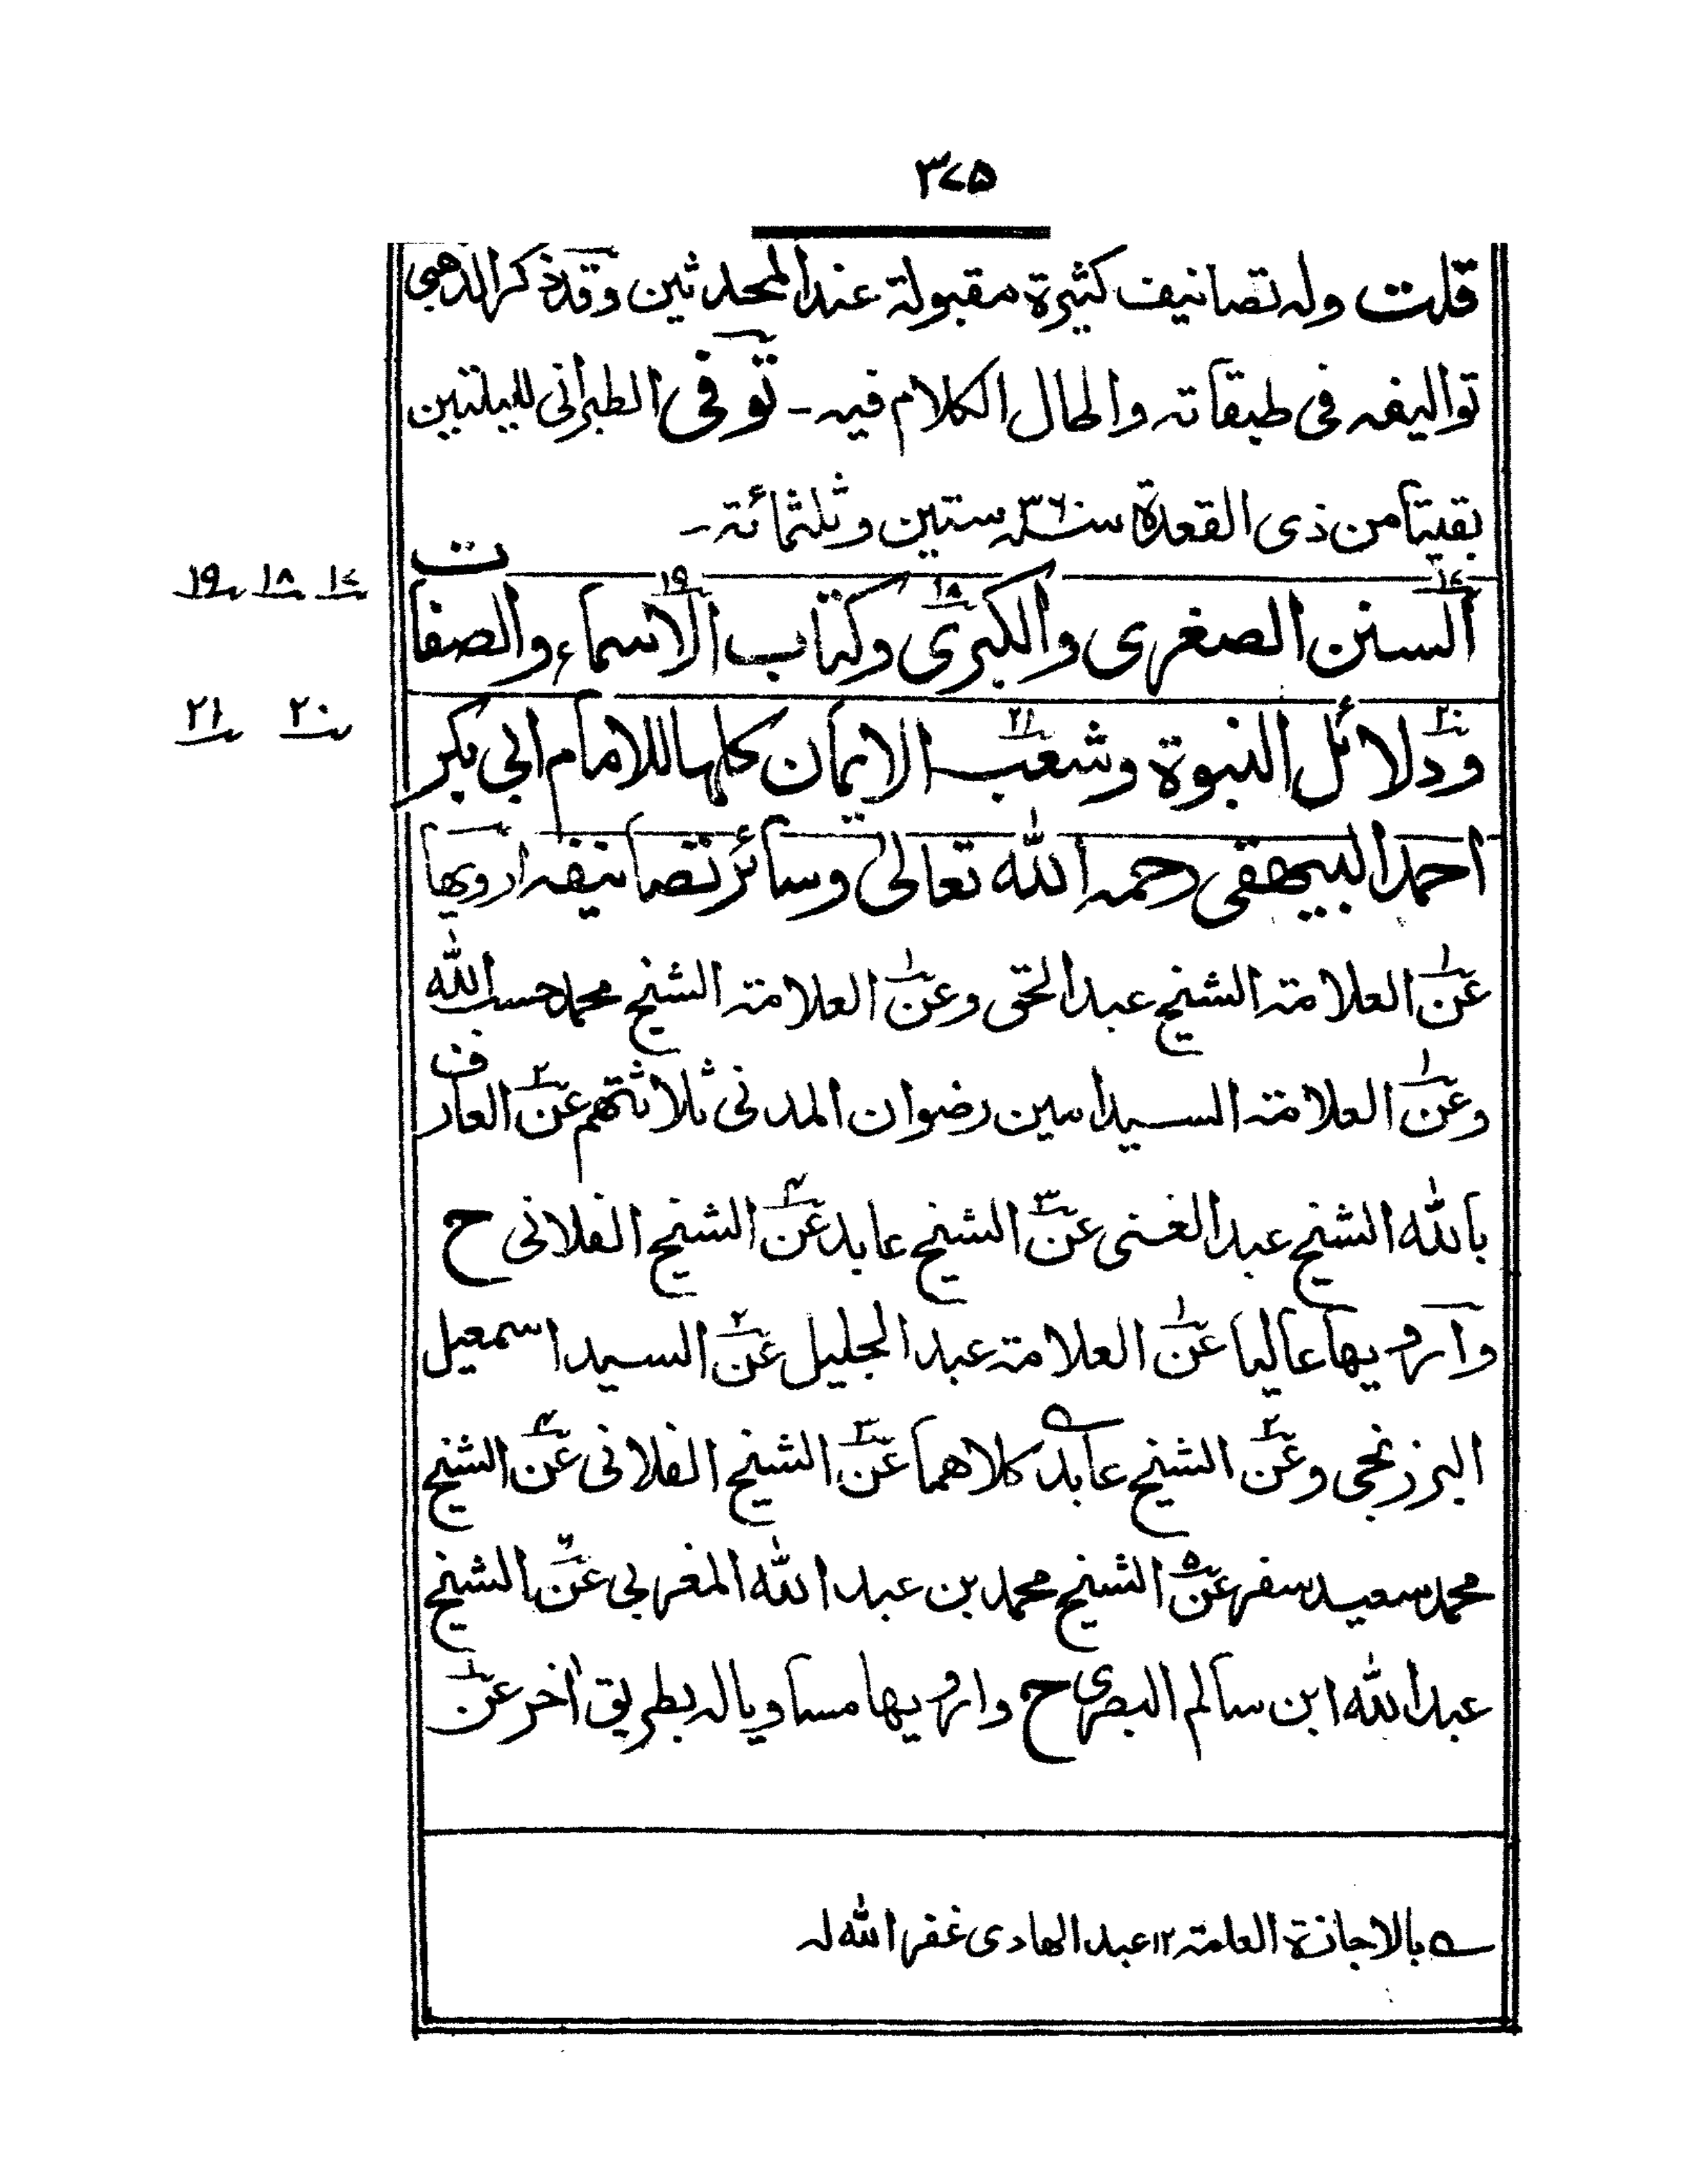 ٣٧٥
قلت وله تصانيف كثيرة مقبولة عند المحدثين وقد ذكر الذهبى
تواليفه فى طبقاته واطال الكلام فيه ـ توفى الطبرانى لليلتين
بقيتا من ذى القعدة سنة ٣٦٠ ستين وثلثمائة ـ
السنن الصغرى والكبرى وكتاب الاسماء والصفات
١٧ ١٨ ١٩
ودلائل النبوة وشعب الايمان كلها للامام ابى بكر
٢٠ ٢١
احمد البيهقى رحمه الله تعالى وسائر تصانيفه ارويها
عن العلامة الشيخ عبد الحق وعن العلامة الشيخ محمد حسب الله
وعن العلامة السيد امين رضوان المدنى ثلاثتهم عن العارف
بالله الشيخ عبد الغنى عن الشيخ عابد عن الشيخ الفلانى ح
وارويها عاليا عن العلامة عبد الجليل عن السيد اسمعيل
البرزنجى وعن الشيخ عابد كلاهما عن الشيخ الفلانى عن الشيخ
محمد سعيد سفر عن الشيخ محمد بن عبد الله المغربى عن الشيخ
عبد الله ابن سالم البصرى ح وارويها مساويا له بطريق أخر عن
بالاجازة العامة ١٢ عبد الهادى غفر الله له